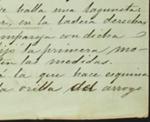 se halla una
, en la ladera derecha
comparza con dicha
la primera mo-
en las medidas.
a la que hace esquina
la orilla del arroyo